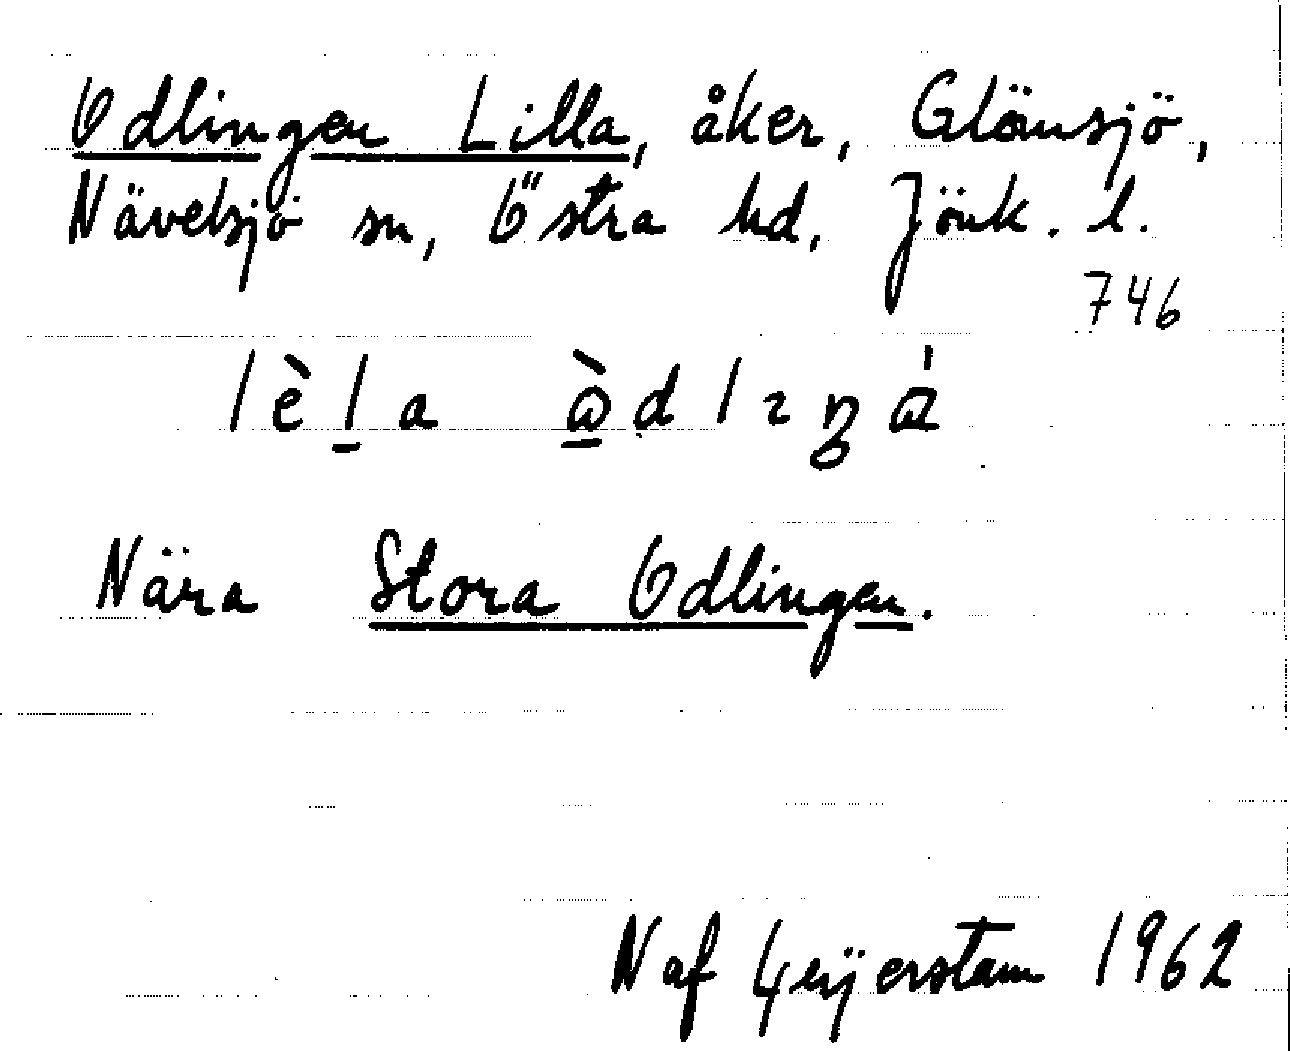 Odlingen Lilla, åker, Glänsjö,
Nävelsjö sn, Östra hd, Jönk. l.
746
Nära Stora Odlingen.
N af Geijerstam 1962